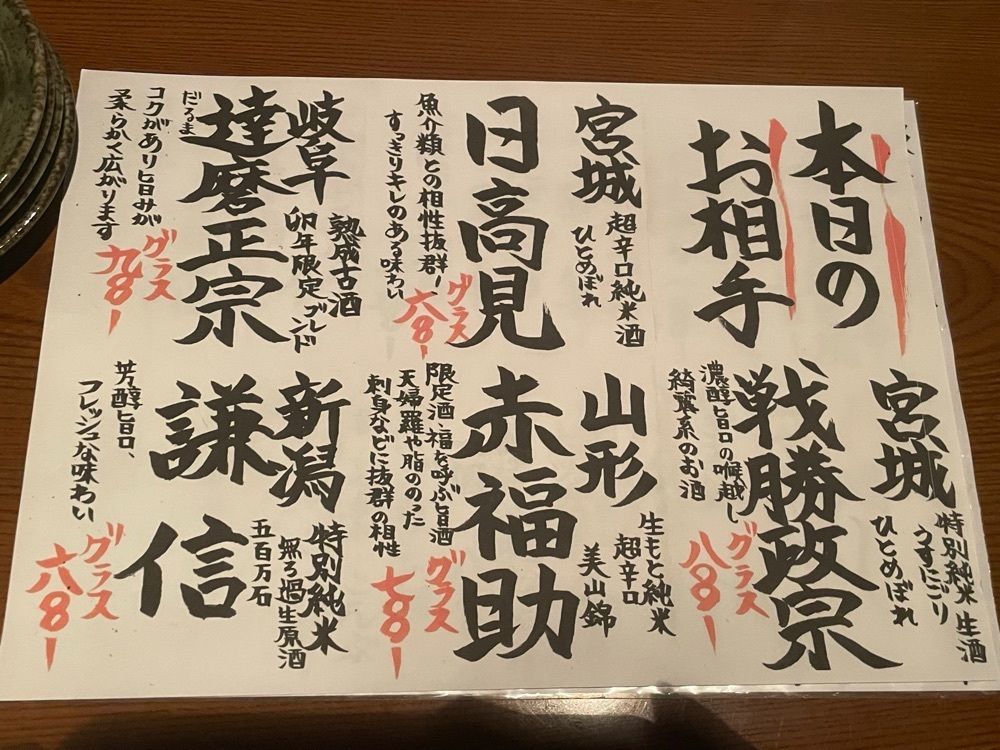 本日の
お相手
宮城
超辛口純米酒
ひとめぼれ
日高見
魚介類との相性抜群!
すっきりキレのある味わい
グラス
六八〇ー
岐阜
熟成古酒
卯年限定ブレンド
達磨正宗
だるま
コクがあり旨みが
柔らかく広がります
グラス
九八〇ー
宮城
特別純米 生酒
うすにごり
ひとめぼれ
戦勝政宗
濃醇旨口の喉越し
綺麗系のお酒
グラス
八八〇ー
山形
生もと純米
超辛口
美山錦
赤福助
限定酒、福を呼ぶ旨酒
天婦羅や脂ののった
刺身などに抜群の相性
グラス
七八〇ー
新潟
特別純米
無ろ過生原酒
五百万石
謙信
芳醇旨口、
フレッシュな味わい
グラス
六八〇ー